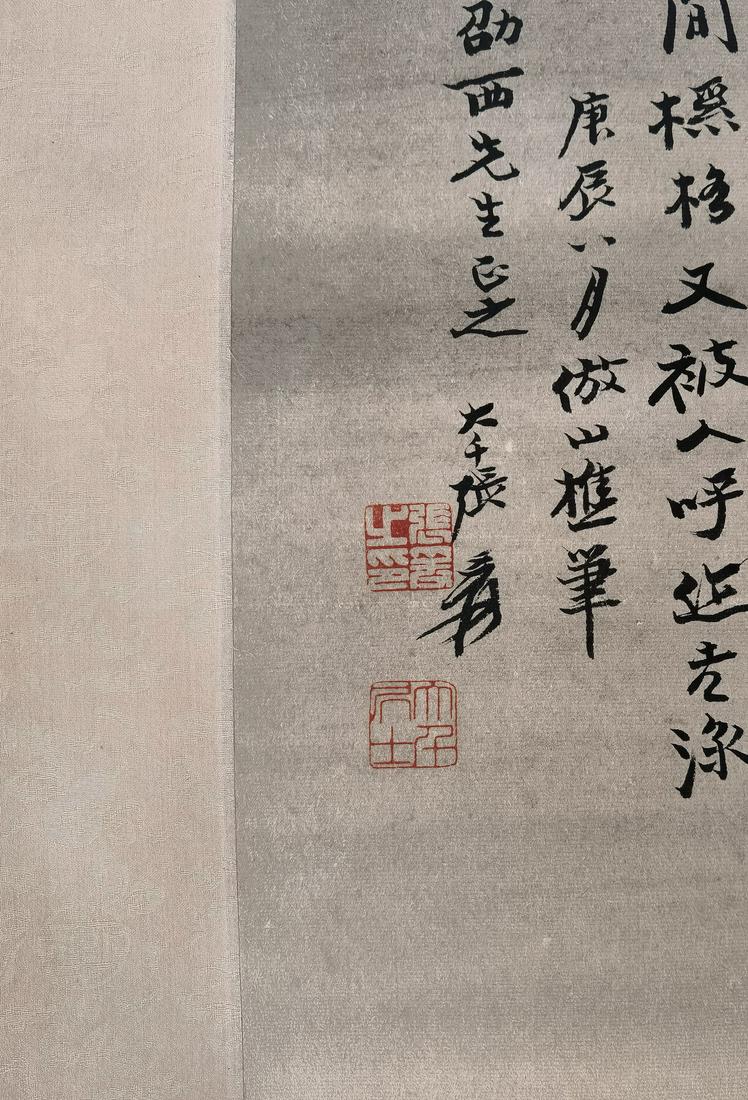 間標格又被人呼作老
庚辰八月倣山樵筆
劭西先生正之 大千張爰
張爰之印
大千居士